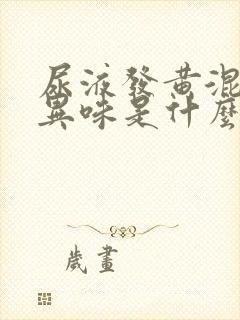 尿液發黃混
異味是什麼
歲畫